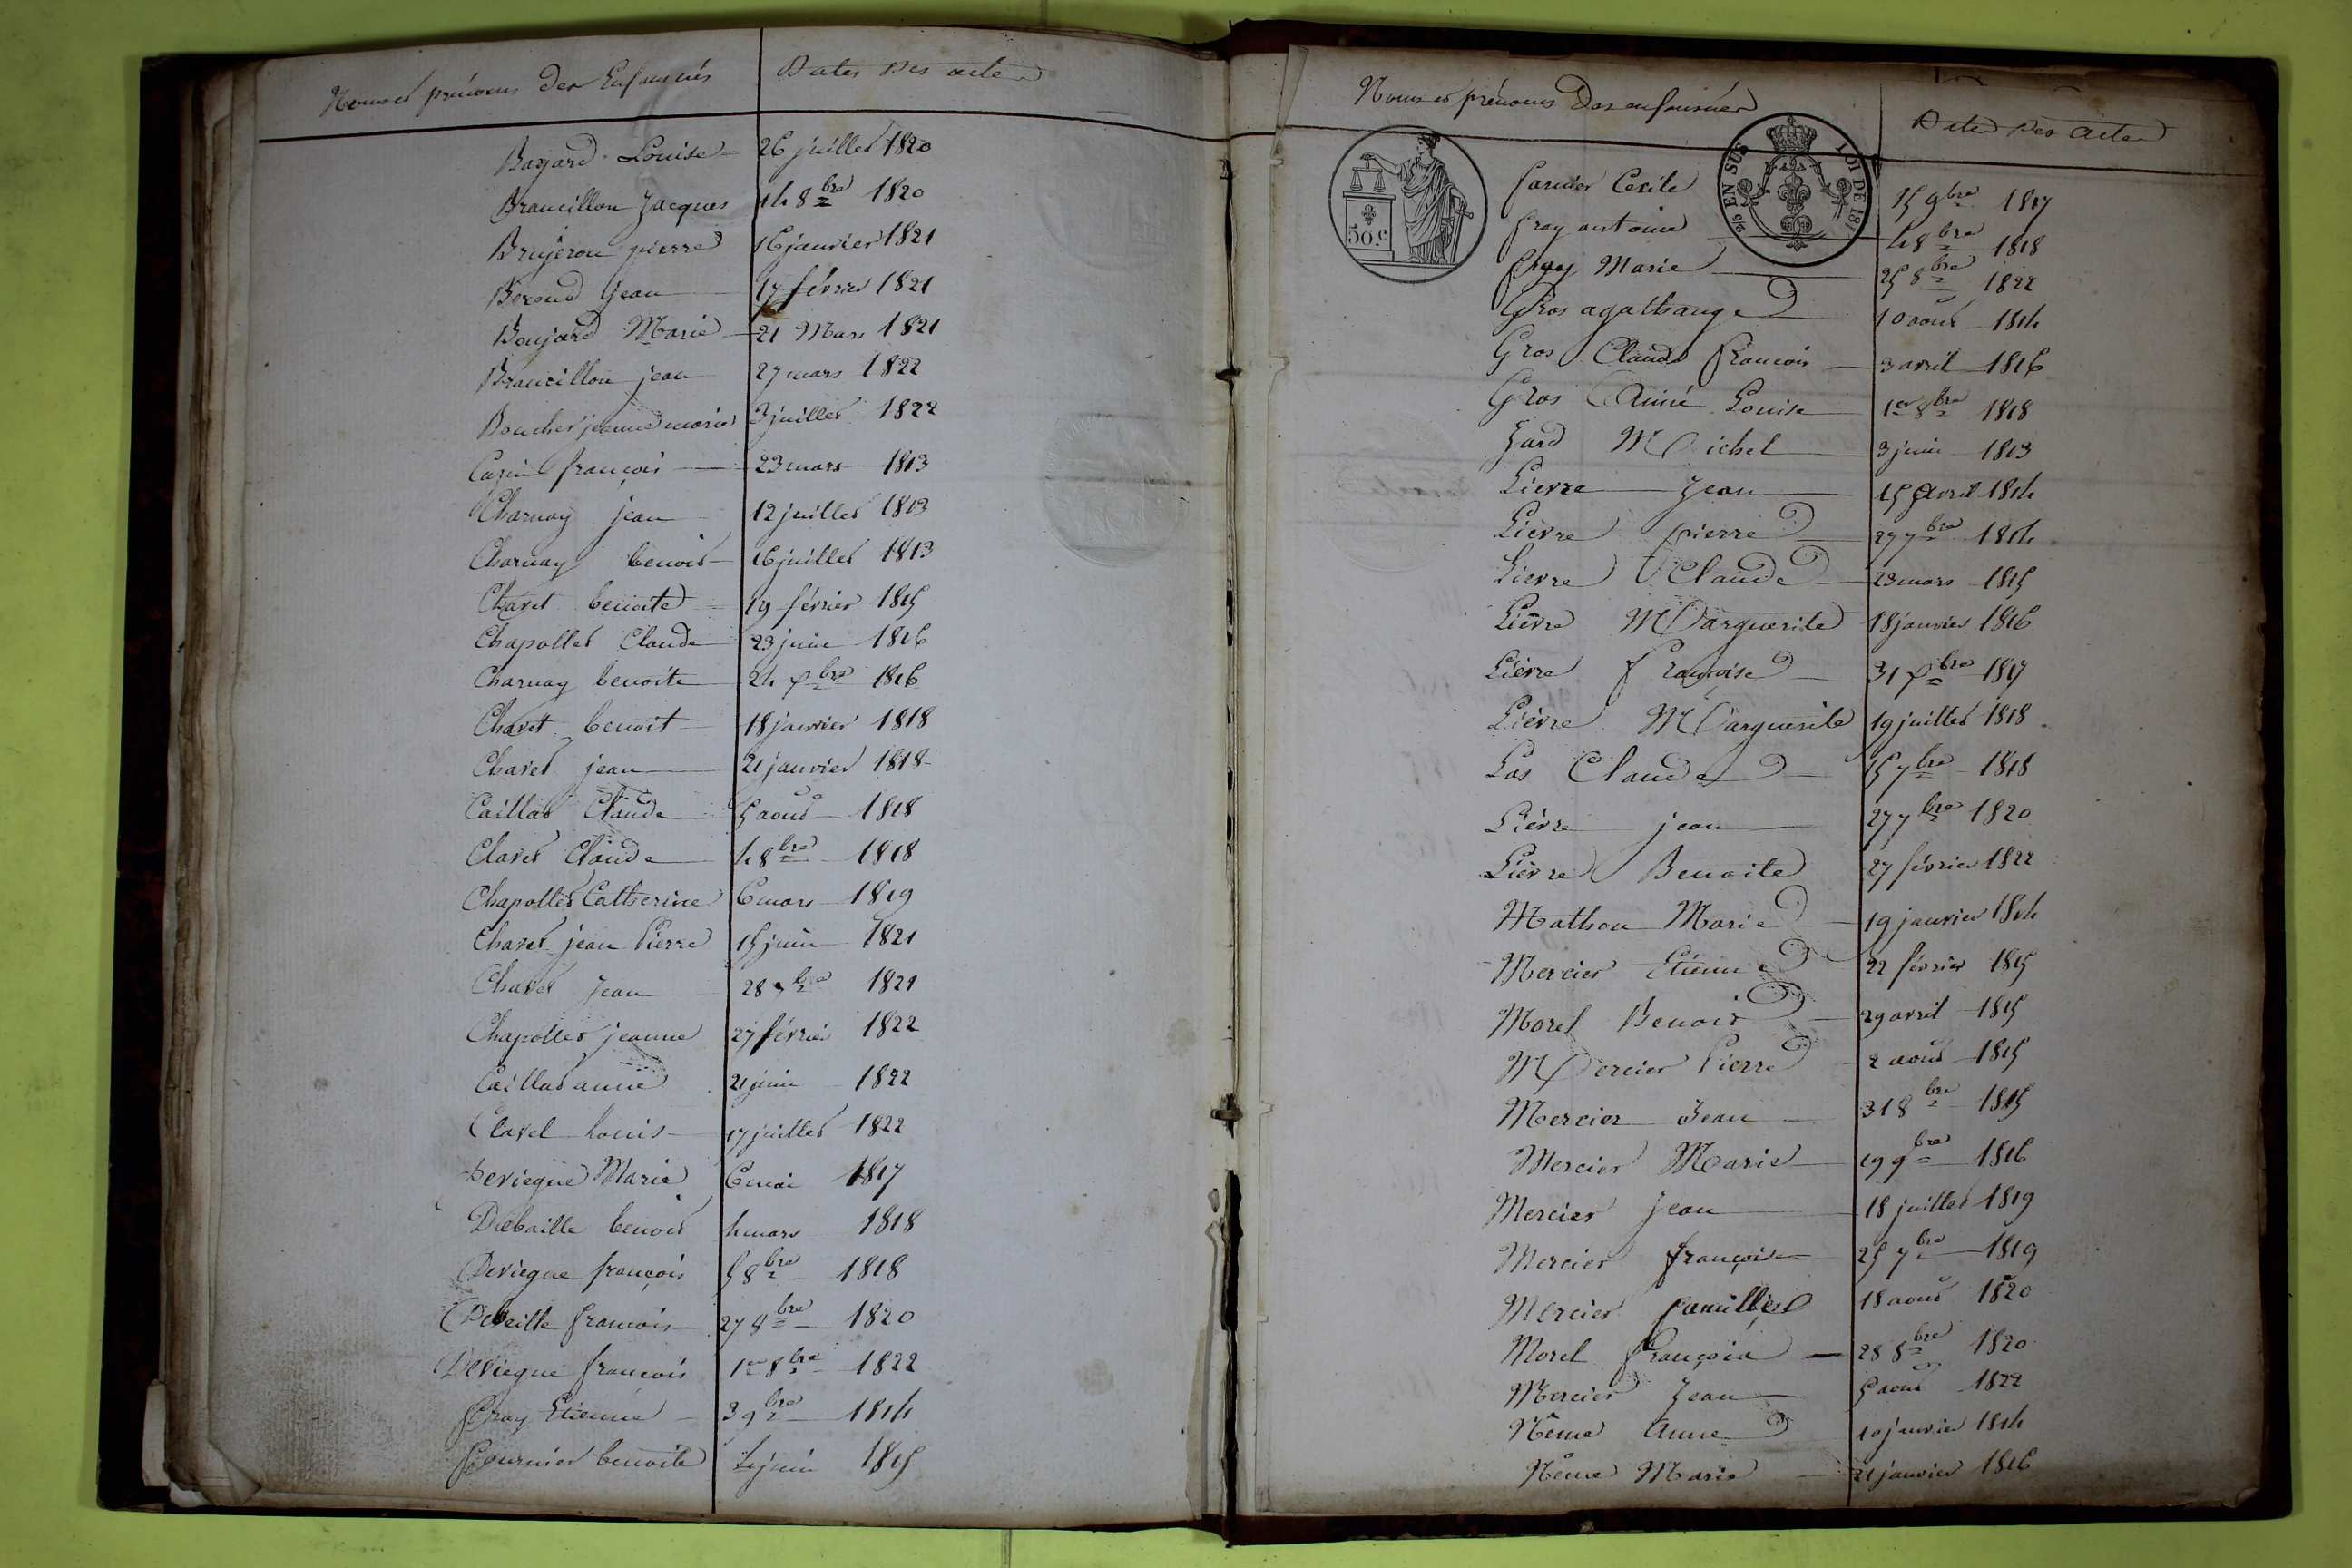 Noms et prénoms des Enfans nés Dates des actes
Bajard Louise 26 juillet 1820
Brancillon Jacques 14 8bre 1820
Brujeron pierre 16 janvier 1821
Beroud jean 17 févrer 1821
Boujard Marie 21 Mars 1821
Brancillon jean 27 mars 1822
Boucher jeanne marie 3 juillet 1822
françois 23 mars 1813
Charnay jean 12 juillet 1813
Charnay benoit 16 juillet 1813
Chavet benoite 19 février 1815
Chapollet Claude 23 juin 1816
Charnay benoite 24 Xbre 1816
Chavet benoit 18 janvier 1818
Chavet jean 21 janvier 1818
Caillat Claude 5 aout 1818
Clavet Claude 4 8bre 1818
Chapollet Catherine 6 mars 1819
Chavet jean Pierre 15 juin 1821
Chavet Jean 28 7bre 1821
Chapollet jeanne 27 février 1822
Caillat anne 21 juin 1822
Clavel Louis 17 juillet 1822
Deviegue Marie 6 mai 1817
Debaille benoit 4 mars 1818
Deviegue françois 5 8bre 1818
Debeille francois 27 8bre 1820
Deviegue francois 1er 8bre 1822
Fray Etienne 3 9bre 1814
Fournier benoite 4 juin 1815
Noms et prénoms des enfans nés Dates des actes
50.c
EN SUS LOI DE 181
Farnier Cecile 15 9bre 1817
Fray antoine 4 8bre 1818
Fray Marie 25 8bre 1822
Gros agathange 10 aout 1814
Gros Claude François 3 avril 1816
Gros Aimé Louise 1er 8bre 1818
Jard Michel 3 juin 1813
Lievre Jean 15 avril 1814
Lièvre pierre 27 7bre 1814
Lievre Claude 28 mars 1815
Lièvre Marguerite 18 janvier 1816
Lièvre Françoise 31 Xbre 1817
Lièvre Marguerite 19 juillet 1818
Las Claude 15 7bre 1818
Lièvre jean 27 7bre 1820
Lièvre Benoite 27 février 1822
Mathon Marie 19 janvier 1814
Mercier Etienne 22 février 1815
Morel Benoit 29 avril 1815
Mercier Pierre 2 aout 1815
Mercier Jean 31 8bre 1815
Mercier Marie 19 9bre 1816
Mercier Jean 18 juillet 1819
Mercier françoise 25 7bre 1819
Mercier 18 aout 1820
Morel François 28 8bre 1820
Mercier Jean 5 aout 1822
Nême Anne 10 janvier 1814
Nême Marie 21 janvier 1816